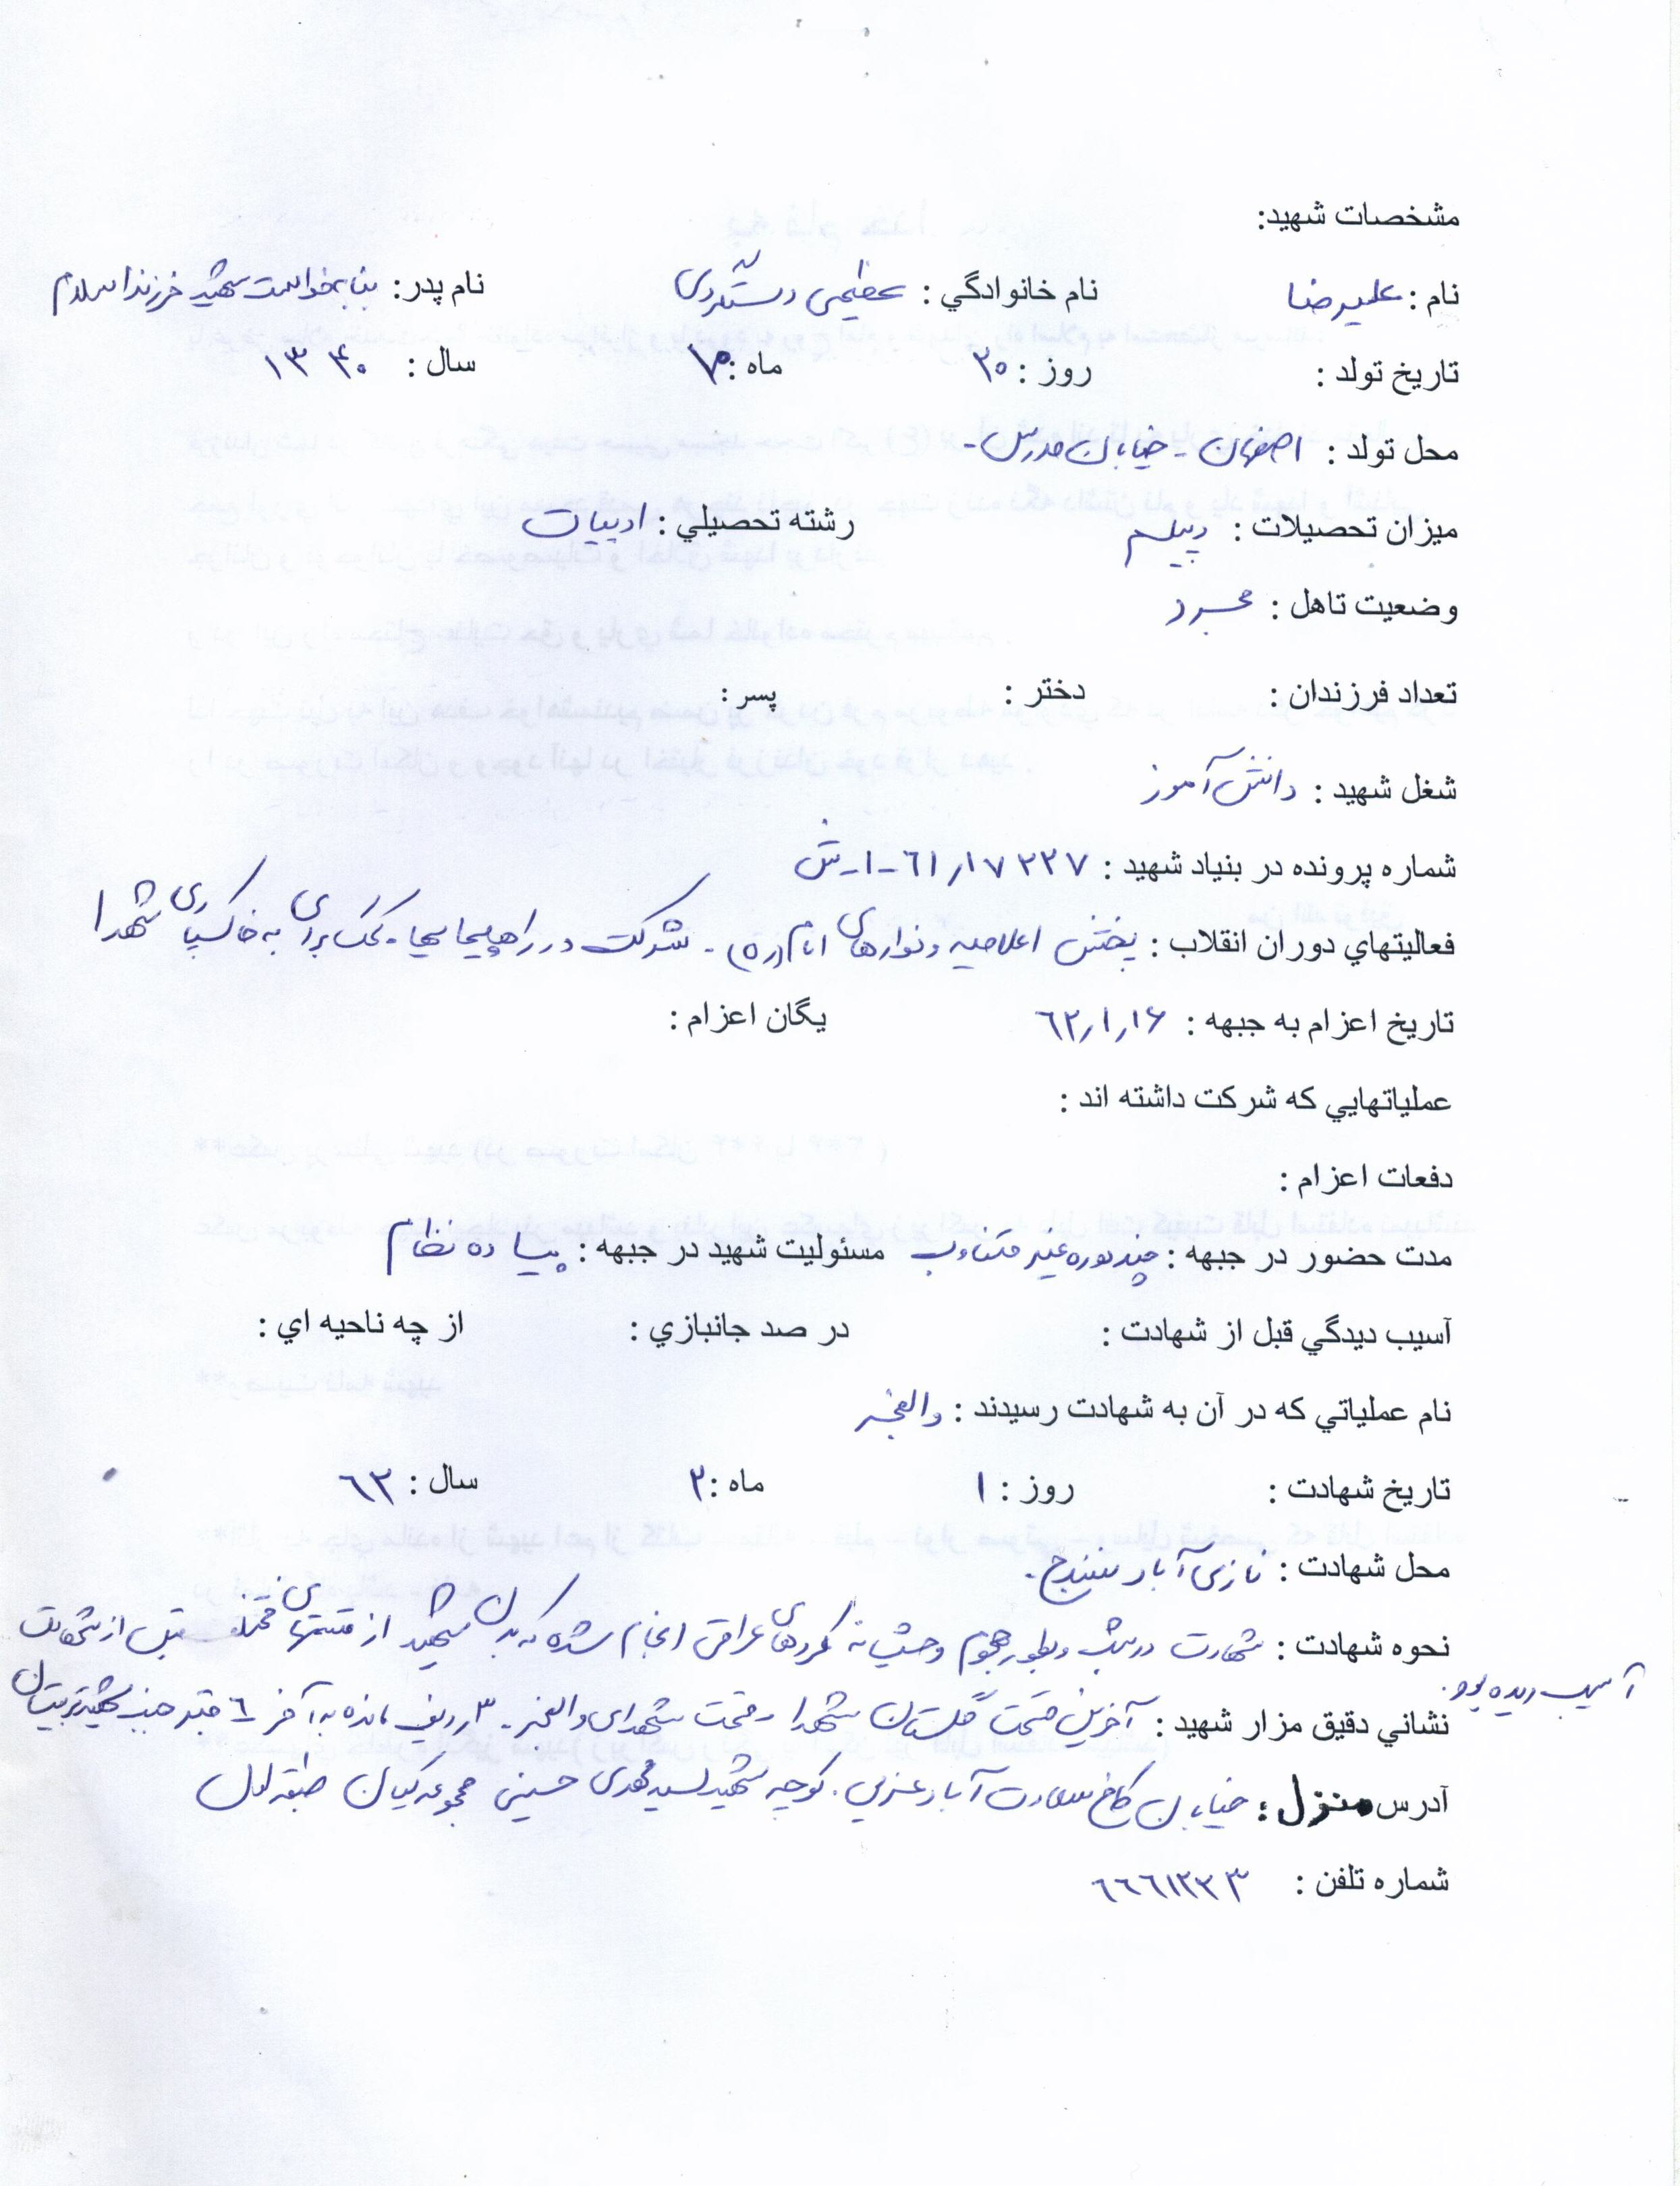 مشخصات شهيد:
نام : عليرضا نام خانوادگي : عظيمى دستگردى نام پدر: بنا بخواست شهيد فرزند اسلام
تاريخ تولد : روز : ٢٠ ماه : سال : ١٣٤٠
محل تولد : اصفهان - خيابان مدرس -
ميزان تحصيلات : ديپلم رشته تحصيلي : ادبيات
وضعيت تاهل : مجرد
تعداد فرزندان : دختر : پسر :
شغل شهيد : دانش آموز
شماره پرونده در بنياد شهيد : ١٧٢٢٧/٦١-١-ش
فعاليتهاي دوران انقلاب : پخش اعلاميه و نوارهاى امام (ره) - شركت در راهپيمايها - كمك براى به خاكسپارى شهدا
تاريخ اعزام به جبهه : ٦٢/١/١۶ يگان اعزام :
عملياتهايي كه شركت داشته اند :
دفعات اعزام :
مدت حضور در جبهه : چند دوره غير متناوب مسئوليت شهيد در جبهه : پياده نظام
آسيب ديدگي قبل از شهادت : در صد جانبازي : از چه ناحيه اي :
نام عملياتي كه در آن به شهادت رسيدند : والفجر
تاريخ شهادت : روز : ١ ماه : ٢ سال : ٦٢
محل شهادت : نازى آباد سنندج -
نحوه شهادت : شهادت در شب و بطور هجوم وحشيانه كردهاى عراقى انجام شده كه بدن شهيد از قسمتهاى مختلف قبل از شهادت
آسيب ديده بود.
نشاني دقيق مزار شهيد : آخرين قسمت گلستان شهدا - قسمت شهداى والفجر - ٣ رديف مانده به آخر ٦ قبر جنب شهيد
آدرس منزل : خيابان كاخ سعادت آباد غربي . كوچه شهيد سيد مهدى حسينى مجموعه كيان طبقه اول
شماره تلفن : ٦٦٦١٢٣٣